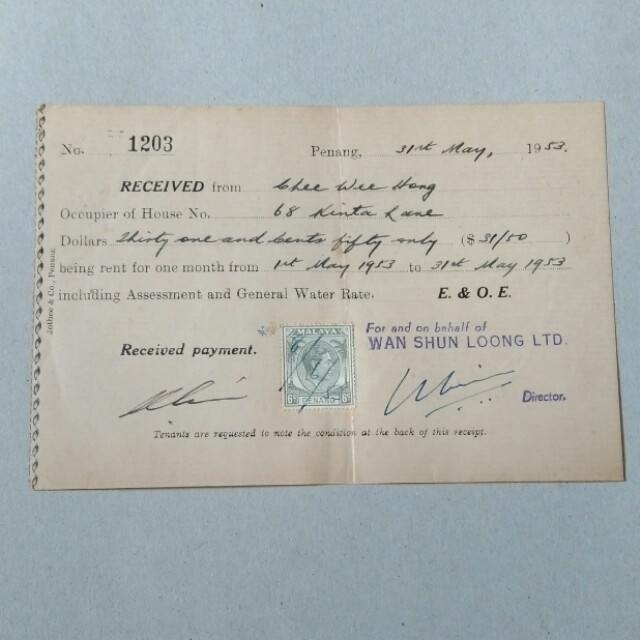 No. 1203 Penang, 31st May, 1953.
RECEIVED from Chee Wee Hong
Occupier of House No. 68 Kinta Lane
Dollars Thirty one and cents fifty only ($ 31/50 )
being rent for one month from 1st May 1953 to 31st May 1953
including Assessment and General Water Rate. E. & O. E.
For and on behalf of
WAN SHUN LOONG LTD.
Received payment.
MALAYA
PENANG
Director.
Tenants are requested to note the condition at the back of this receipt.
& Co., Penang